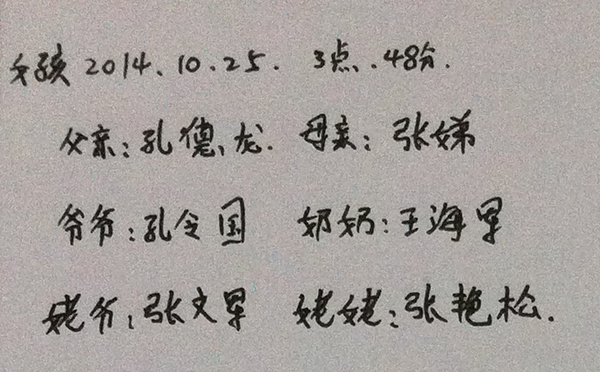 女孩 2014.10.25. 3点.48分.
父亲:孔德龙. 母亲:张娣
爷爷:孔令国 奶奶:王海军
姥爷:张文军 姥姥:张艳松.